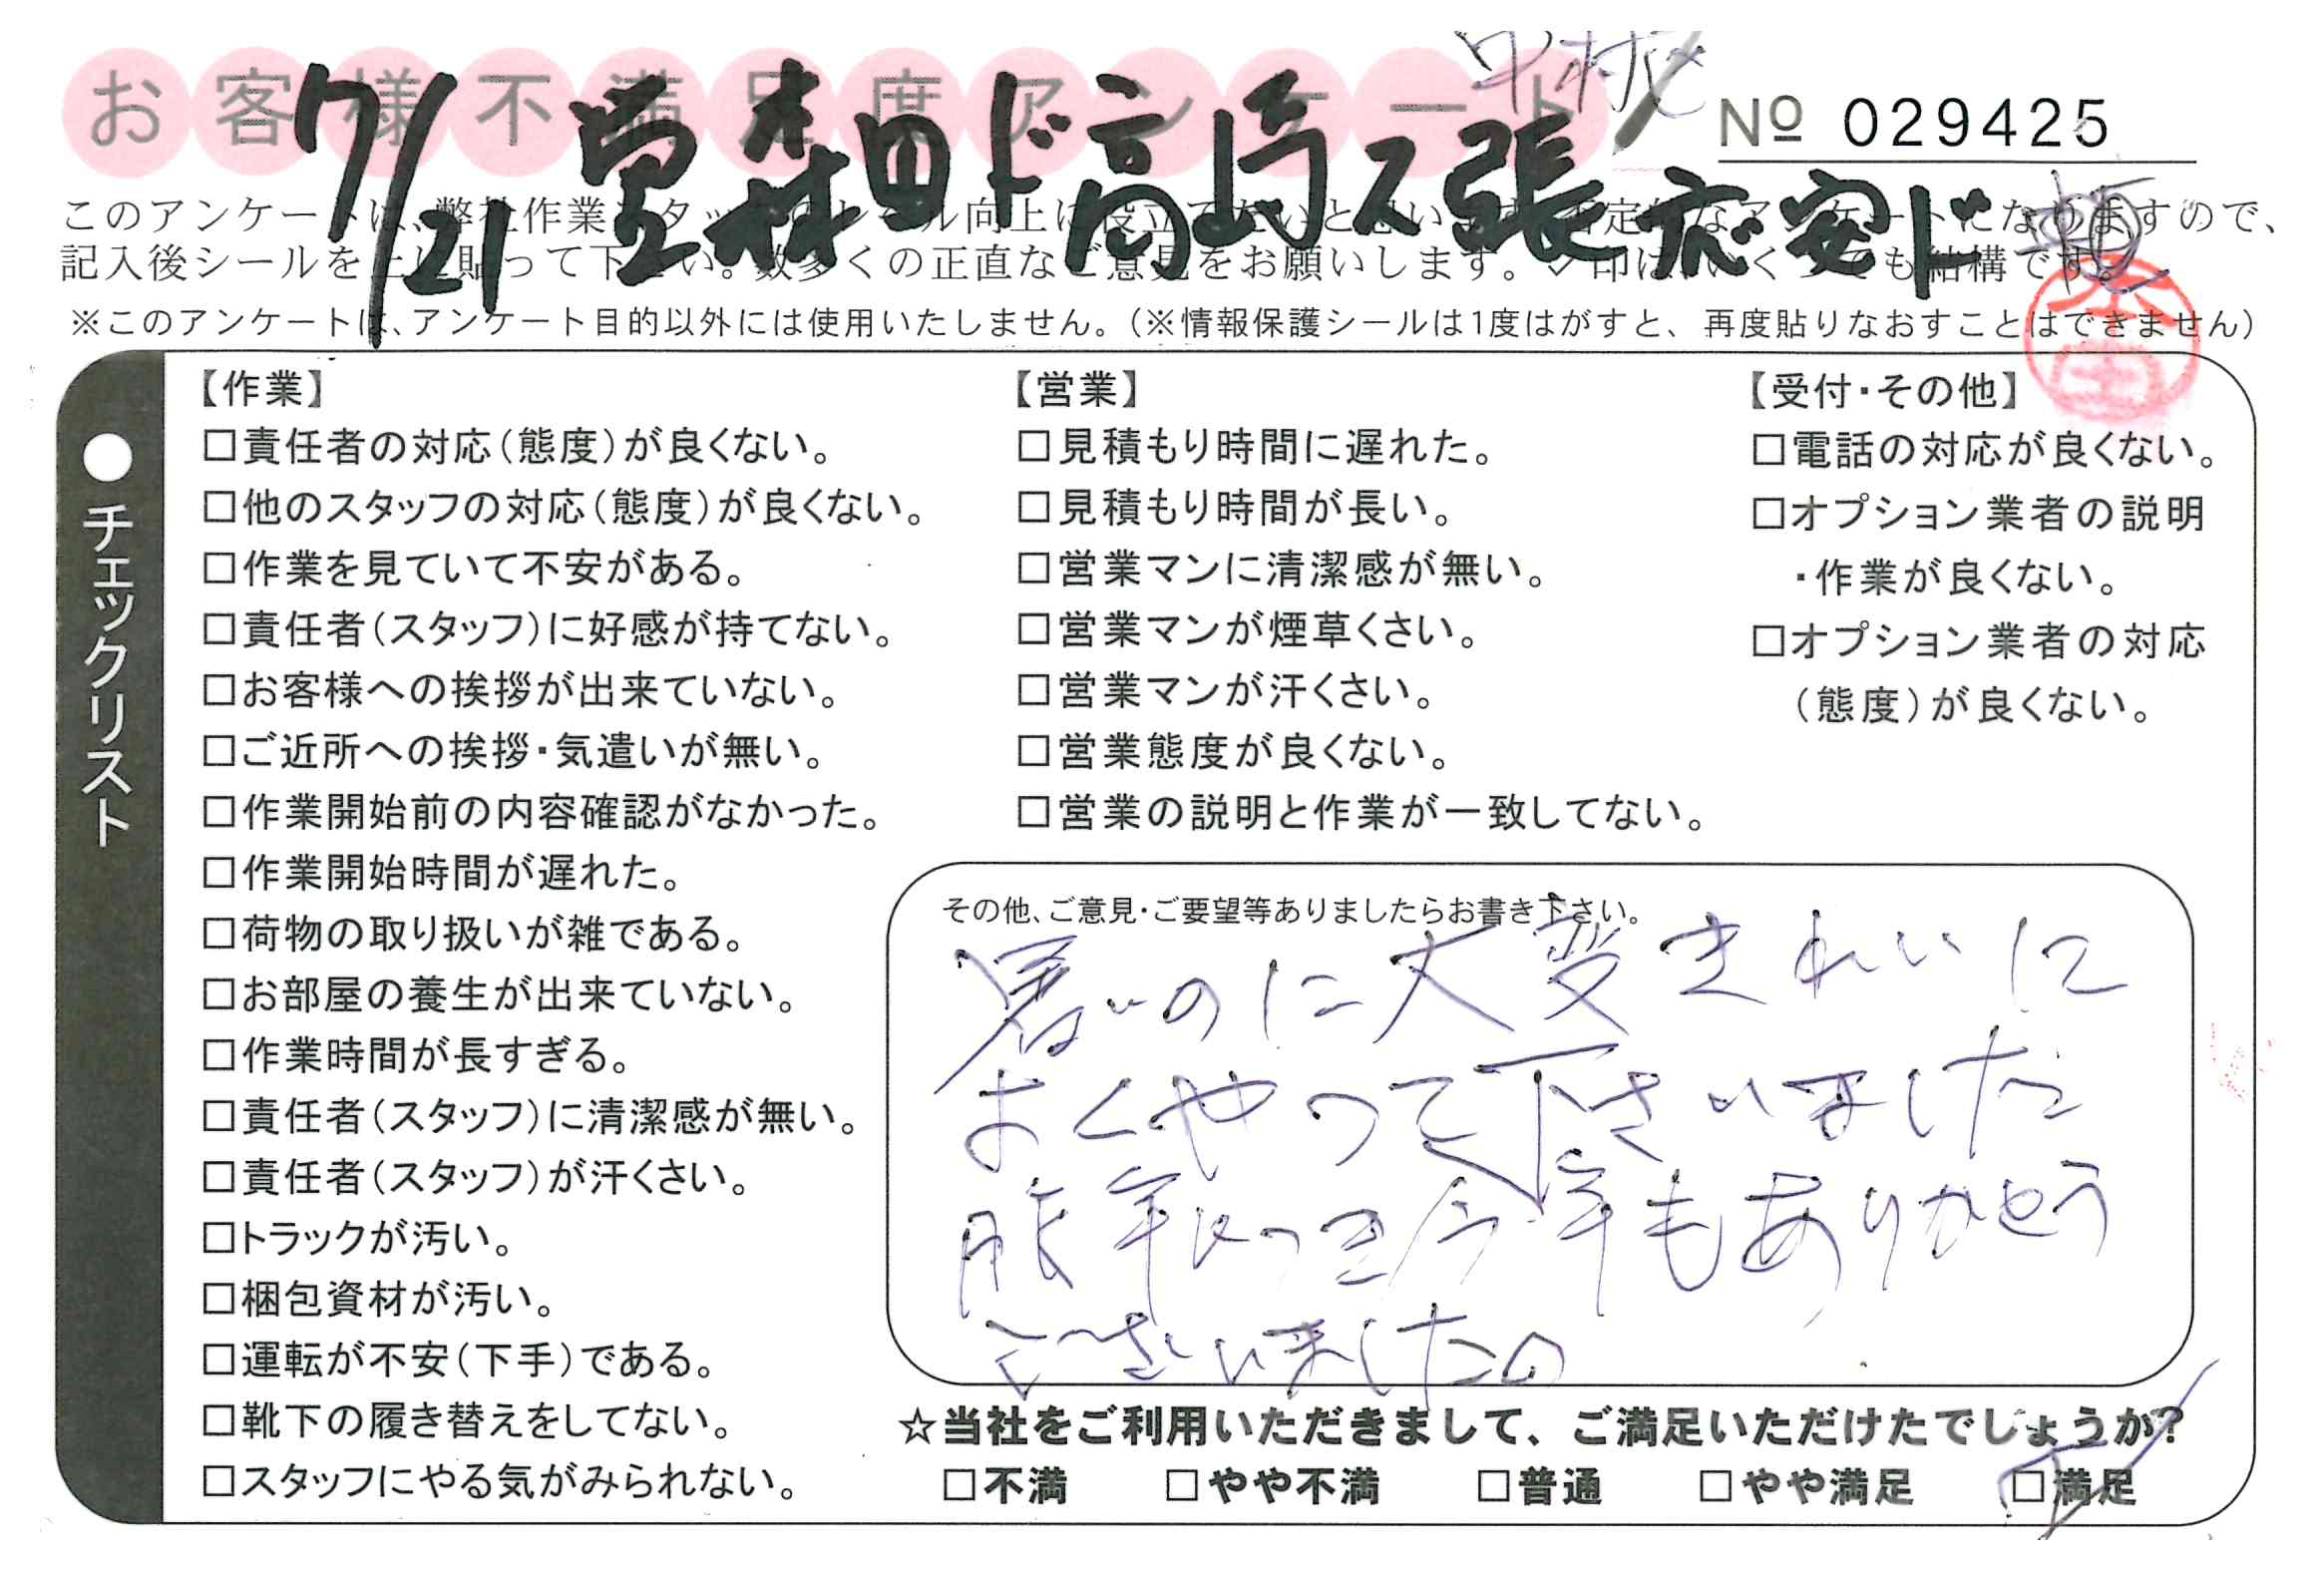 お客様不満足度アンケート
中村
№ 029425
7/21 森田ド 高崎ス 張 応安ド
このアンケートは、弊社作業スタッフのレベル向上に役立てたいと思います。否定的なアンケートになりますので、
記入後シールを上に貼って下さい。数多くの正直なご意見をお願いします。✓印はいくつでも結構です。
※このアンケートは、アンケート目的以外には使用いたしません。(※情報保護シールは1度はがすと、再度貼りなおすことはできません)
●チェックリスト
【作業】
□責任者の対応(態度)が良くない。
□他のスタッフの対応(態度)が良くない。
□作業を見ていて不安がある。
□責任者(スタッフ)に好感が持てない。
□お客様への挨拶が出来ていない。
□ご近所への挨拶・気遣いが無い。
□作業開始前の内容確認がなかった。
□作業開始時間が遅れた。
□荷物の取り扱いが雑である。
□お部屋の養生が出来ていない。
□作業時間が長すぎる。
□責任者(スタッフ)に清潔感が無い。
□責任者(スタッフ)が汗くさい。
□トラックが汚い。
□梱包資材が汚い。
□運転が不安(下手)である。
□靴下の履き替えをしてない。
□スタッフにやる気がみられない。
【営業】
□見積もり時間に遅れた。
□見積もり時間が長い。
□営業マンに清潔感が無い。
□営業マンが煙草くさい。
□営業マンが汗くさい。
□営業態度が良くない。
□営業の説明と作業が一致してない。
【受付・その他】
□電話の対応が良くない。
□オプション業者の説明
・作業が良くない。
□オプション業者の対応
(態度)が良くない。
その他、ご意見・ご要望等ありましたらお書き下さい。
暑いのに大変きれいに
よくやって下さいました
昨年につづき今年もありがとう
ございました。
☆当社をご利用いただきまして、ご満足いただけたでしょうか?
□不満 □やや不満 □普通 □やや満足 ☑満足